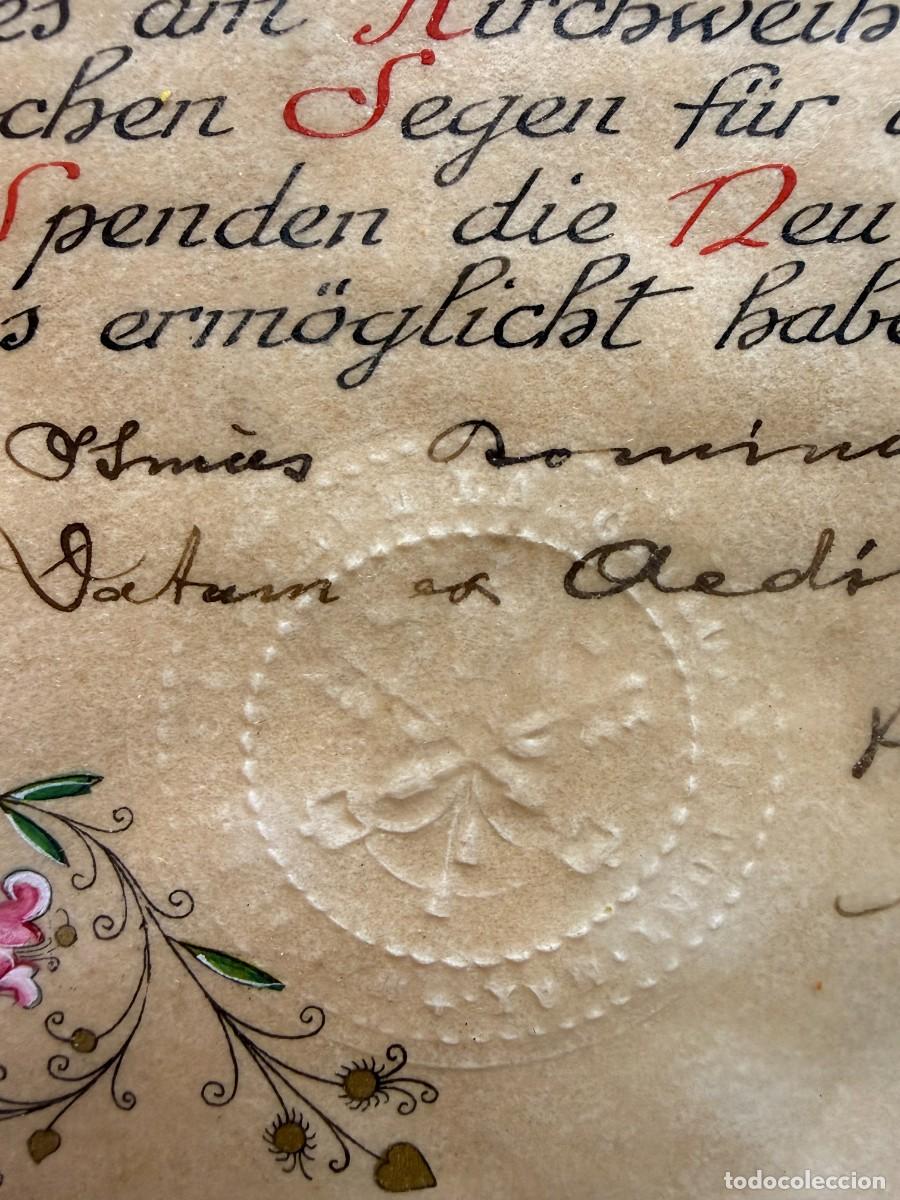 es am Kirchweih
chen Segen für
Spenden die Neu
s ermöglicht habe
Domin
Datum ex Aedi
todocoleccion